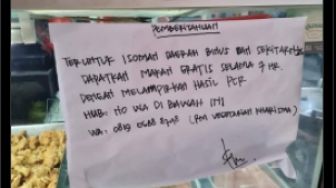 PEMBERITAHUAN
TERUNTUK ISOMAN DAERAH BINUS DAN SEKITARNYA
DAPATKAN MAKAN GRATIS SELAMA 7 HR.
DENGAN MELAMPIRKAN HASIL PCR
HUB: NO WA DI BAWAH INI
WA: 0819 0688 (RM VEGETARIAN KHARISMA)